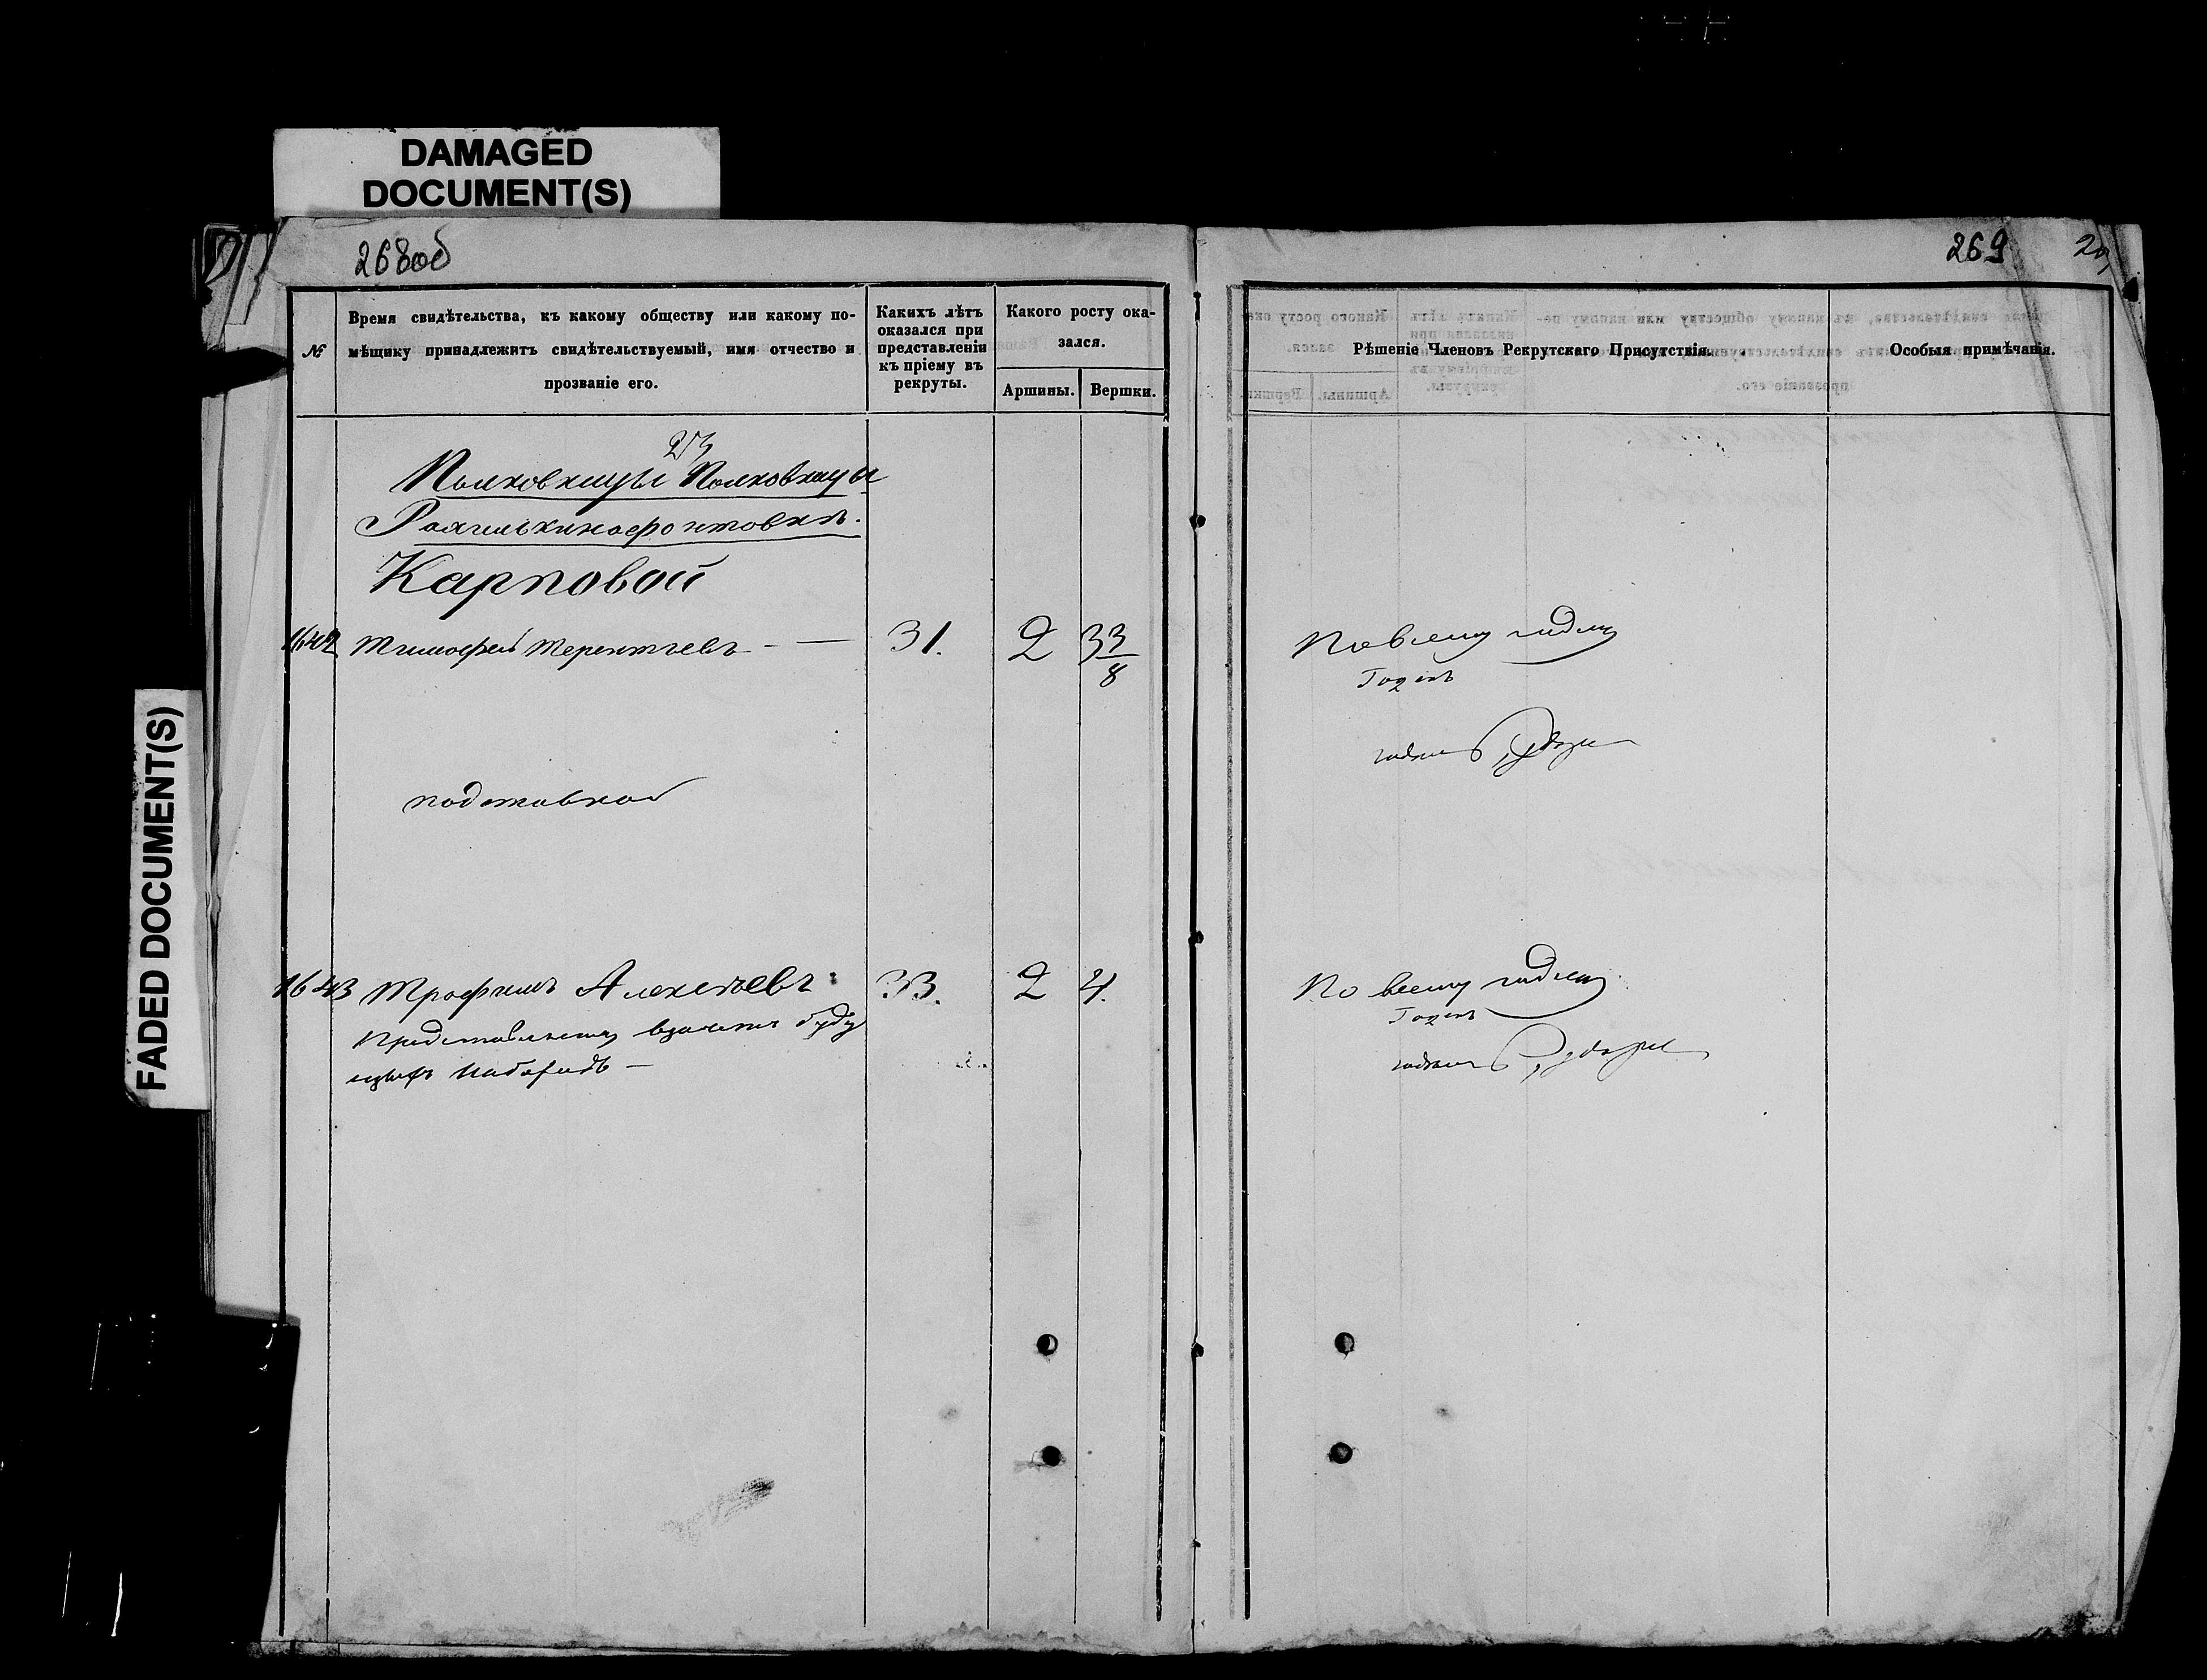 DAMAGED
DOCUMENT(S)
FADED DOCUMENT(S)
268об
№
Время свидѣтельства, къ какому обществу или какому по-
мѣщику принадлежитъ свидѣтельствуемый, имя отчество и
прозваніе его.
Какихъ лѣтъ
оказался при
представленіи
къ пріему въ
рекруты.
Какого росту ока-
зался.
Аршины.
Вершки.
273
Карповой
1642 Тимофей Терентьевъ — 31. 2 3 3/8
подставной
1643 Трофимъ Алексѣевъ 33. 2 4.
Представленъ взачетъ буду
щихъ наборовъ —
269
Рѣшеніе Членовъ Рекрутскаго Присутствія.
Особыя примѣчанія.
По всему годенъ
Годенъ
годенъ
По всему годенъ
Годенъ
годенъ